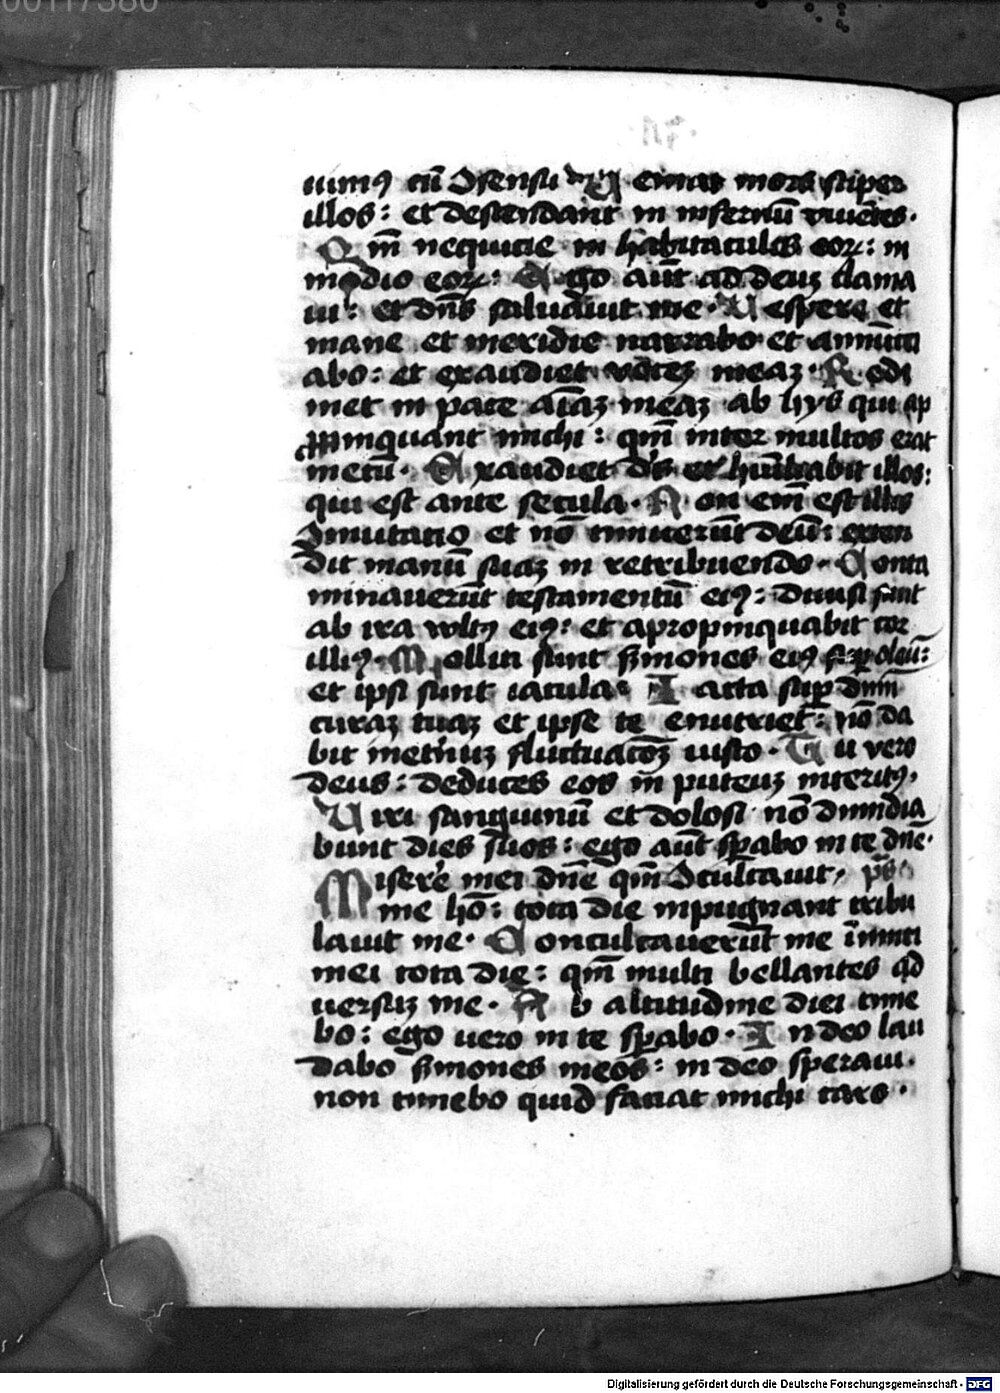 00117380
117.
uimꝰ cū ɔsensu Ueniat mors super
illos: et descendant in infernū viuētes.
Qm̄ nequicie in habitaculis eoꝝ: in
medio eoꝝ: Ego aūt ad deuꝫ clama
ui: et dn̄s saluauit me. Uespere et
mane et meridie narrabo et annūci
abo: et exaudiet vocēꝫ meaꝫ. Redi
met in pace aīaꝫ meaꝫ ab hys qui ap
ꝓpinquant michi: qm̄ inter multos erāt
mecū. Exaudiet ds̄ et hūiliabit illos:
qui est ante secula. Non em̄ est illis
ɔmutatio et nō timuerūt deū: exten
dit manū suaꝫ in retribuendo. Conta
minauerūt testamentū eiꝰ: diuisi sunt
ab ira vultꝰ eiꝰ: et apropinquabit cor
illiꝰ. Molliti sunt s̄mones eiꝰ suꝑ oleū:
et ipsi sunt iacula. Iacta suꝑ dnm
curaꝫ tuaꝫ et ipse te enutriet: nō da
bit in etnuꝫ fluctuacōeꝫ iusto. Tu vero
deus: deduces eos in puteuꝫ interitꝰ.
Uiri sanguinū et dolosi nō dimidia
bunt dies suos: ego aūt sꝑabo in te dn̄e.
Misere mei dn̄e qm̄ ɔculcauit, ps̄
me hō: tota die inpugnant tribu
lauit me. Conculcauerūt me inimici
mei tota die: qm̄ multi bellantes ad
uersuꝫ me. Ab altitudine diei time
bo: ego uero in te sꝑabo. In deo lau
dabo s̄mones meos: in deo speraui.
non timebo quid faciat michi caro.
Digitalisierung gefördert durch die Deutsche Forschungsgemeinschaft - DFG